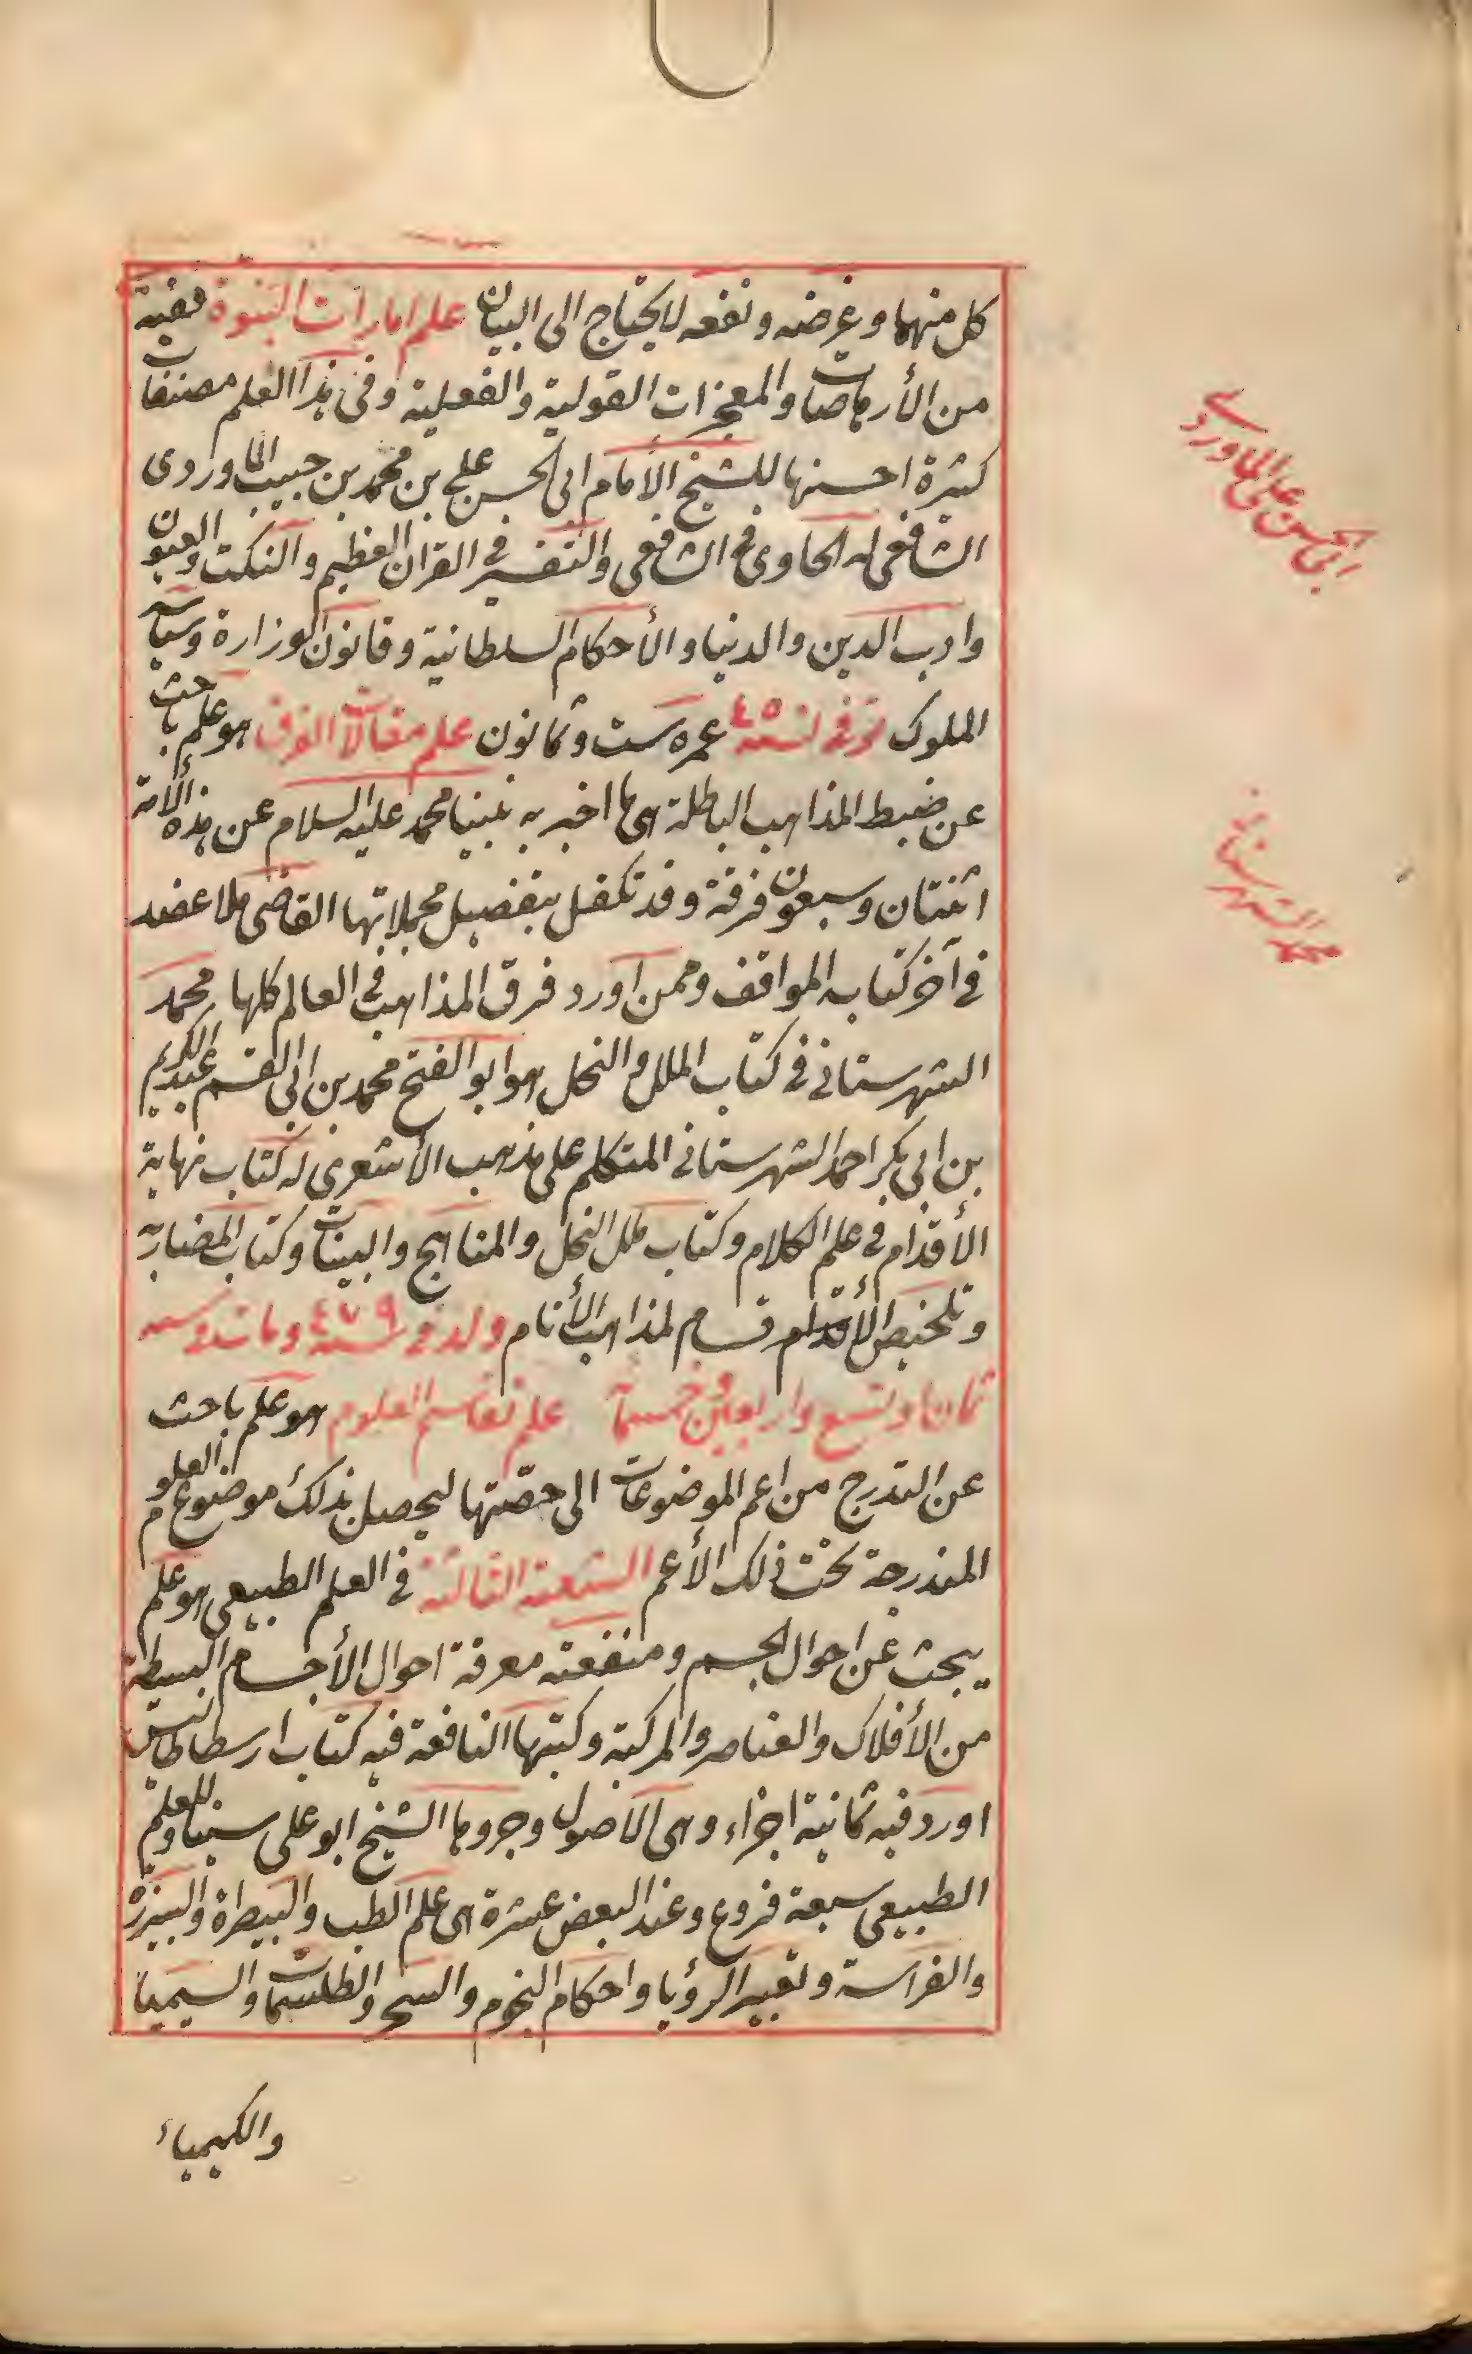 كل منهما وغرضه ونفعه لا يحتاج الى البيان علم امارات النبوة فغيه
من الأرهاصات والمعجزات القولية والفعلية وفى هذا العلم مصنفات
كثيرة احسنها للشيخ الأمام ابى الحسن على بن محمد بن حبيب الماوردى
الشافعى له الحاوى فى الشافعى والتفسير فى القران العظيم والنكت والعيون
وادب الدين والدنيا والأحكام السلطانية وقانون الوزارة وسياسة
الملوك توفى لسنة ٤٥ عمره ست وثمانون علم مقالات الفرق هو علم باحث
عن ضبط المذاهب الباطلة هى ما اخبر به نبينا محمد عليه السلام عن هذه الأمة
اثنتان وسبعون فرقة وقد تكفل بتفصيل مجملاتها القاضى ملا عضد
فى آخر كتابه المواقف وممن اورد فرق المذاهب فى العالم كلها محمد
الشهرستانى فى كتاب الملل والنحل هو ابو الفتح محمد بن ابى القسم عبد الكريم
بن ابى بكر احمد الشهرستانى المتكلم على مذهب الأشعرى له كتاب نهاية
الأقدام فى علم الكلام وكتاب ملل النحل والمناهج والبينات وكتاب المضاربة
وتلخيص الأقسام لمذاهب الأنام ولد فى سنة ٤٧٩ ومات فى سنه
ثمان او تسع واربعين وخمسمأ علم تقاسيم العلوم هو علم باحث
عن التدرج من اعم الموضوعات الى حصتها ليحصل بذلك موضوع العلوم
المندرجة تحت ذلك الأعم الشعبة الثالثة فى العلم الطبيعى هو علم
يبحث عن احوال الجسم ومنفعته معرفة احوال الأجسام البسيطة
من الأفلاك والعناصر والمركبة وكتبها النافعة فيه كتاب ارسطاطاليس
اورد فيه ثمانية اجزاء وهى الاصول وجروها الشيخ ابو على سينا وللعلم
الطبيعى سبعة فروع وعند البعض عشرة هى علم الطب والبيطرة والبيزرة
والفراسة وتعبير الرؤيا واحكام النجوم والسحر والطلسمات والسيميا
والكيمياء
ابى الحسن على الماوردى
محمد الشهرستانى